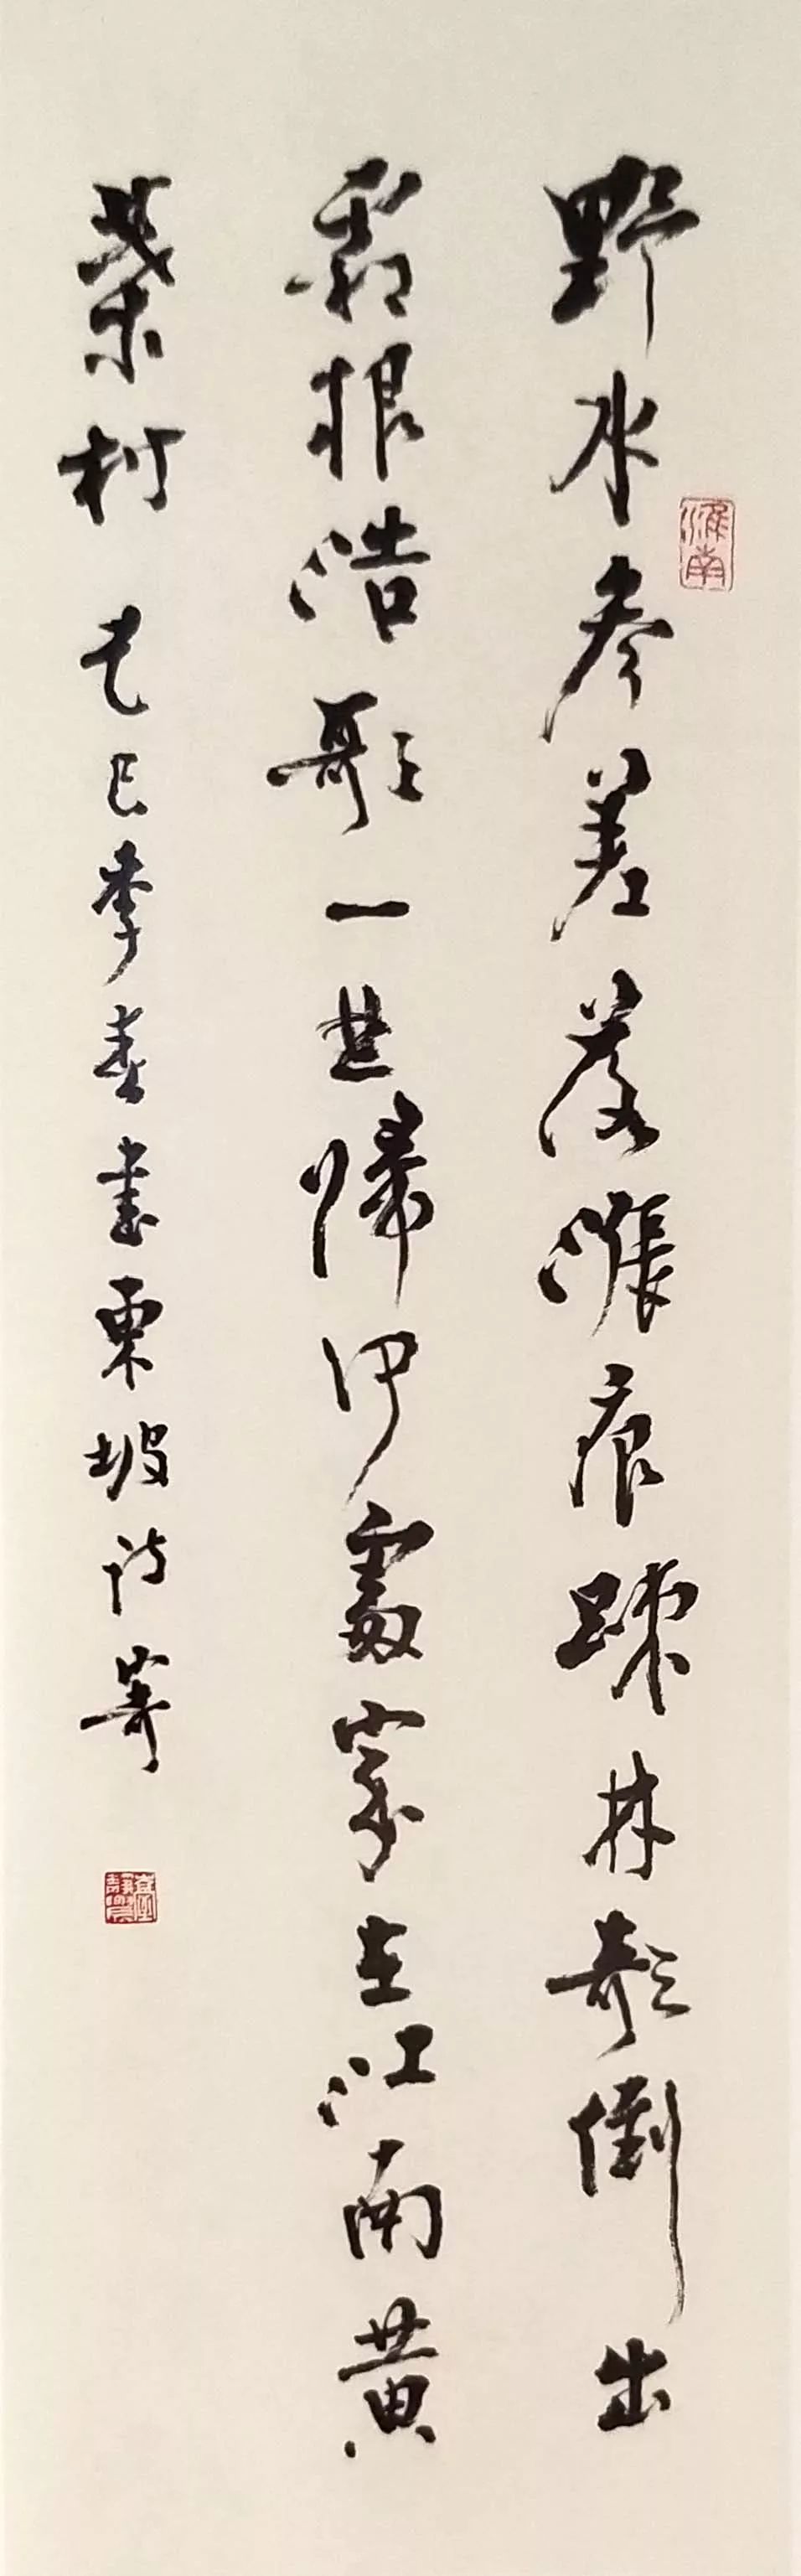 野水參差落漲痕踈林欹倒出
霜根浩歌一曲歸何處家在江南黃
葉村 乙巳季春書東坡詩
淮南